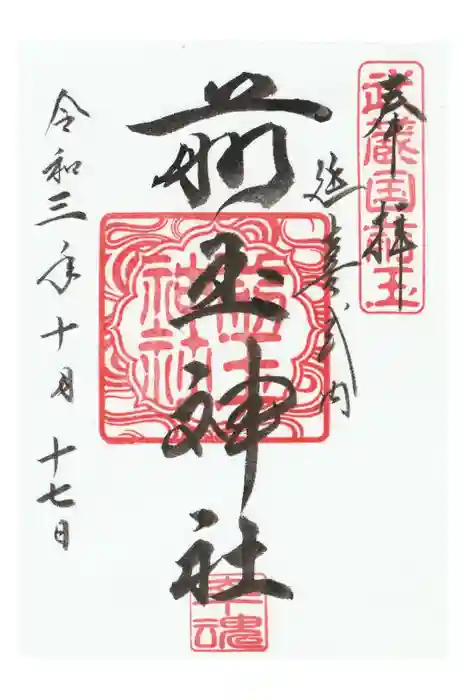 奉拝
武蔵国前玉
延喜式内
前玉神社
幸魂
令和三年十月十七日